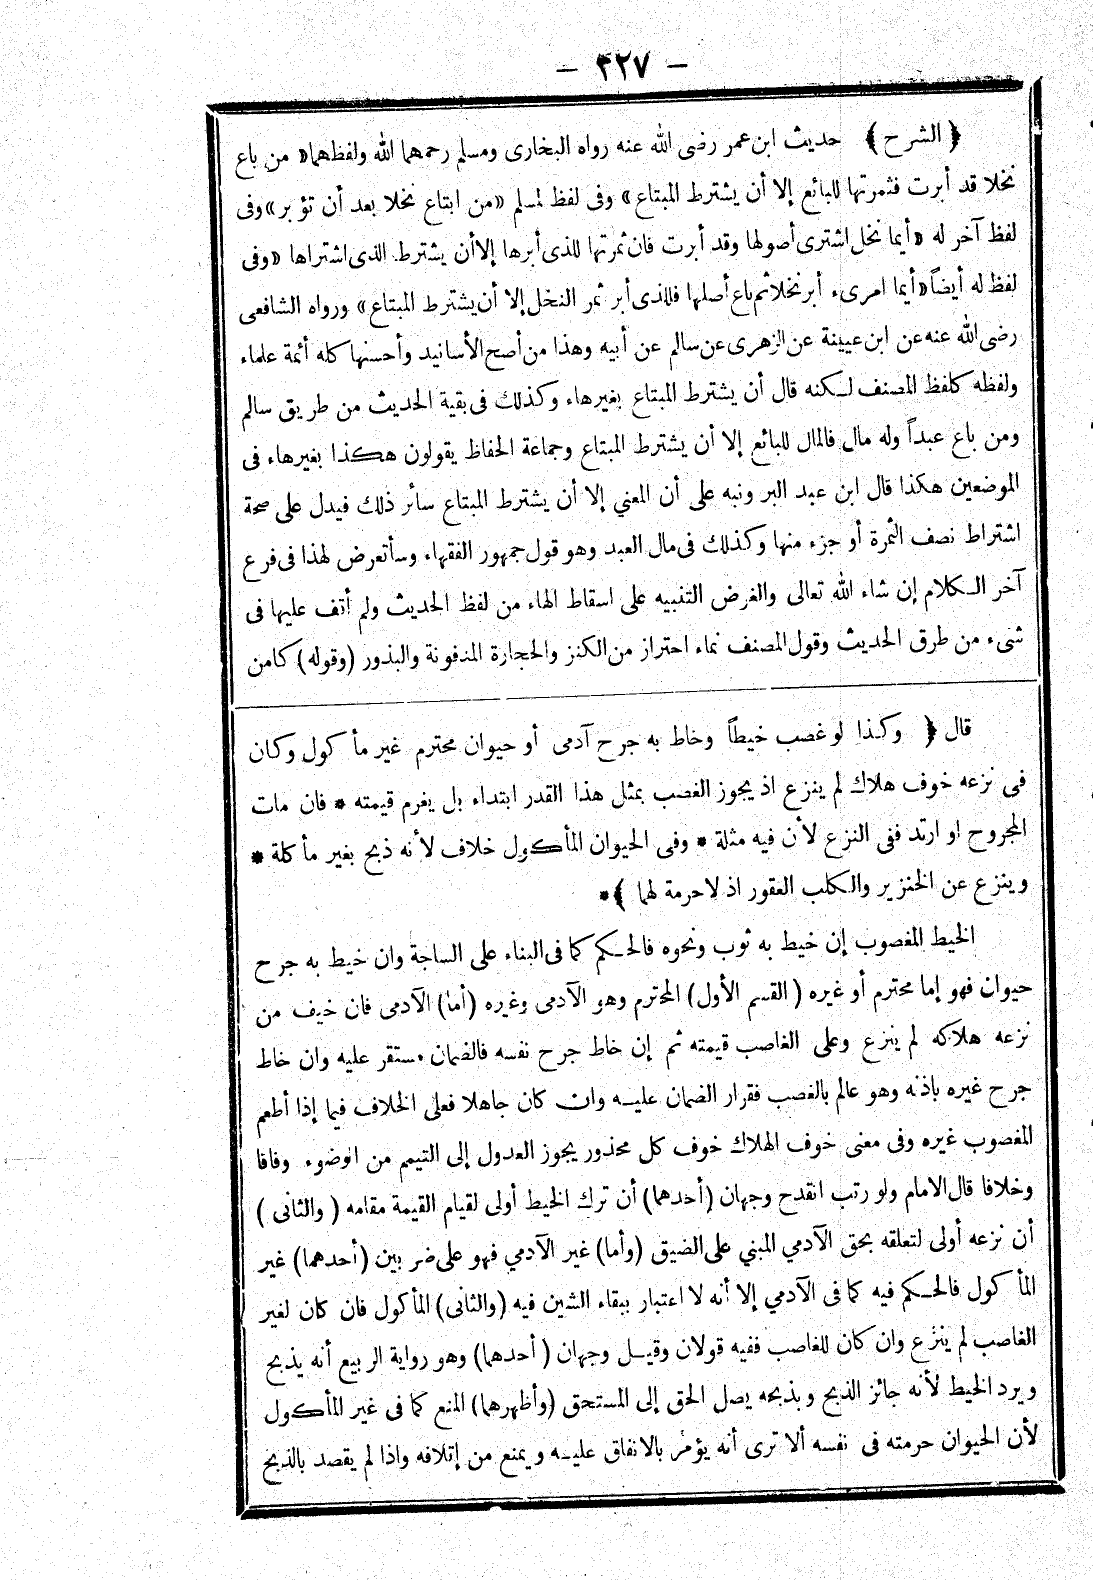 — ٣٢٧ —
﴿ الشرح ﴾ حديث ابن عمر رضى الله عنه رواه البخارى ومسلم رحمهما الله ولفظهما « من باع
نخلا قد أبرت فثمرتها للبائع إلا أن يشترط المبتاع » وفى لفظ لمسلم « من ابتاع نخلا بعد أن تؤبر » وفى
لفظ آخر له « أيما نخل اشترى أصولها وقد أبرت فان ثمرتها للذى أبرها إلا أن يشترط الذى اشتراها « وفى
لفظ له أيضاً « أيما امرىء أبر نخلا ثم باع أصلها فللذى أبر ثمر النخل إلا أن يشترط المبتاع » ورواه الشافعى
رضى الله عنه عن ابن عيينة عن الزهرى عن سالم عن أبيه وهذا من أصح الأسانيد وأحسنها كله أئمة علماء
ولفظه كلفظ المصنف لكنه قال أن يشترط المبتاع بغير هاء وكذلك فى بقية الحديث من طريق سالم
ومن باع عبداً وله مال فالمال للبائع إلا أن يشترط المبتاع وجماعة الحفاظ يقولون هكذا بغير هاء فى
الموضعين هكذا قال ابن عبد البر ونبه على أن المعني إلا أن يشترط المبتاع سائر ذلك فيدل على صحة
اشتراط نصف الثمرة أو جزء منها وكذلك فى مال العبد وهو قول جمهور الفقهاء وسأتعرض لهذا فى فرع
آخر الكلام إن شاء الله تعالى والغرض التنبيه على اسقاط الهاء من لفظ الحديث ولم أتف عليها فى
شىء من طرق الحديث وقول المصنف نماء احتراز من الكنز والحجارة المدفونة والبذور (وقوله) كامن
قال ﴿ وكذا لو غصب خيطاً وخاط به جرح آدمى أو حيوان محترم غير مأكول وكان
فى نزعه خوف هلاك لم ينزع اذ يجوز الغصب بمثل هذا القدر ابتداء بل يغرم قيمته * فان مات
المجروح او ارتد ففى النزع لأن فيه مثلة * وفى الحيوان المأكول خلاف لأنه ذبح بغير مأكلة *
وينزع عن الخنزير والكلب العقور اذ لا حرمة لهما ﴾ *
الخيط المغصوب إن خيط به ثوب ونحوه فالحكم كما فى البناء على الساجة وان خيط به جرح
حيوان فهو إما محترم أو غيره ( القسم الأول) المحترم وهو الآدمى وغيره (أما) الآدمى فان خيف من
نزعه هلاكه لم ينزع وعلى الغاصب قيمته ثم إن خاط جرح نفسه فالضمان مستقر عليه وان خاط
جرح غيره باذنه وهو عالم بالغصب فقرار الضمان عليه وان كان جاهلا فعلى الخلاف فيما إذا أطعم
المغصوب غيره وفى معنى خوف الهلاك خوف كل محذور يجوز العدول إلى التيمم من الوضوء وفاقا
وخلافا قال الامام ولو رتب انقدح وجهان (أحدهما) أن ترك الخيط أولى لقيام القيمة مقامه ( والثانى )
أن نزعه أولى لتعلقه بحق الآدمي المبني على الضيق (وأما) غير الآدمي فهو على ضربين (أحدهما) غير
المأكول فالحكم فيه كما فى الآدمي إلا أنه لا اعتبار ببقاء الشين فيه (والثانى) المأكول فان كان لغير
الغاصب لم ينزع وان كان للغاصب ففيه قولان وقيل وجهان ( أحدهما) وهو رواية الربيع أنه يذبح
ويرد الخيط لأنه جائز الذبح وبذبحه يصل الحق إلى المستحق (وأظهرهما) المنع كما فى غير المأكول
لأن الحيوان حرمته فى نفسه ألا ترى أنه يؤمر بالانفاق عليه ويمنع من إتلافه واذا لم يقصد بالذبح